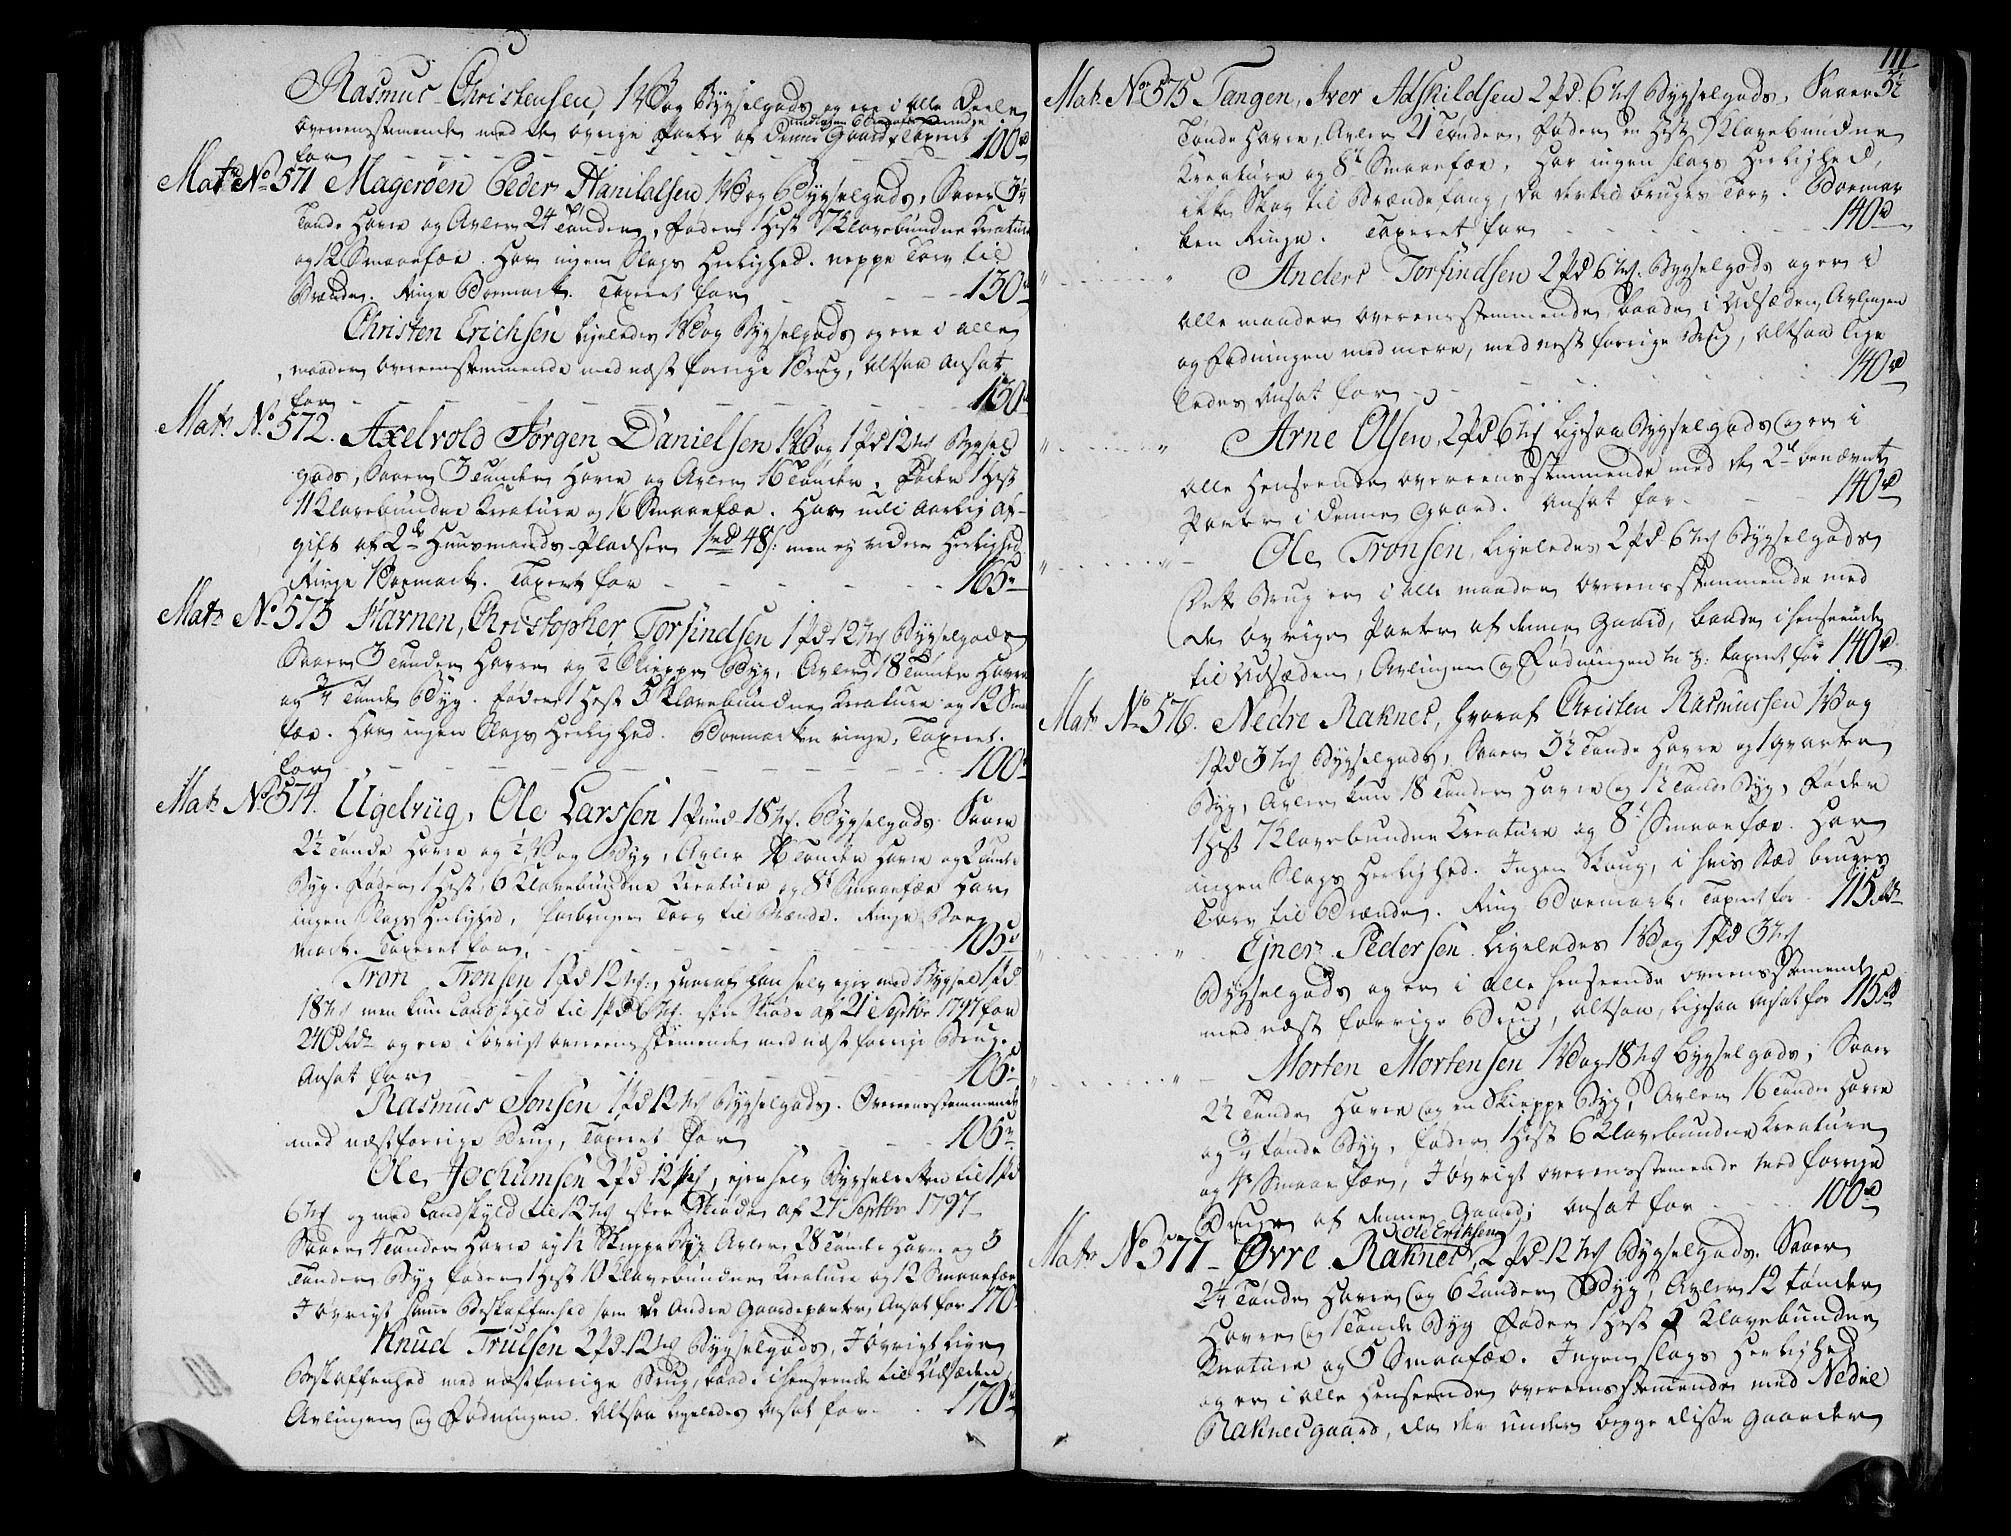 Rasmus Christensen, 1 Vog Bygselgods og ere i alle Deele
overeenstemmende med de øvrige Parter af denne Gaard Taxeret
for 100
Mat: No 571 Magerøen Peder Danielsen 1 Vog Bygselgods, Saaer 3½
Tønde Havre og Avler 24 Tønder, føder 1 Hest 7 Klavebundne Kreature
og 12 Smaafæe. Har ingen Slags Herlighed. neppe Torv til
Brænde. Ringe Boemark. Taxeret for 130
Christen Erichsen ligeledes 1 Vog Bygselgods og ere i alle
maader overeenstemmende med næst forrige Brug, altsaa Ansat
for 130
Mat: No 572. Axelvold Jørgen Danielsen 1 Vog 1 Pd 12 Mk Bygsel
gods, Saaer 3 Tønder Havre og Avler 16 Tønder, Føder 1 Hest
11 Klavebundne Kreature og 16 Smaafæe. Har udi Aarlig af-
gift af 2de Huusmands-Pladser 1 rd 48 s: men ej videre Herlighed
Ringe Boemark. Taxeret for 165
Mat: No 573 Havnen, Christopher Torfindsen 1 Pd 12 Mk Bygselgods
Saaer 3 Tønder Havre og ½ Skieppe Byg, Avler 18 Tønder Havre
og ¾ Tønde Byg. føder 1 Hest 5 Klavebundne Kreature og 12 Smaa
fæe. Har ingen Slags Herlighed. Boemarken ringe, Taxeret
for 100
Mat: No 574. Ugelviig, Ole Larssen 1 Pund 18 Mk. Bygselgods. Saaer
2½ Tønde Havre og ½ Vog Byg, Avler 16 Tønder Havre og 2 Tønder
Byg. Føder 1 Hest, 6 Klavebundne Kreature og 8te Smaafæe har
ingen Slags Herlighed, forbruger Torv til Brænde. Ringe Boe
mark. Taxeret for 105
Tron Tronsen 1 Pd 12 Mk., hvoraf han selv ejer med Bygsel 1 Pd
18 Mk men kun Landskyld til 1 Pd 6 Mk. efter Skiøde af 21 Septbr 1797 for
240 Rd og ere i øvrigt overeenstemmende med næst forrige Brug
Ansat for 105
Rasmus Jonsen 1 Pd 12 Mk Bygselgods. Overeenstemmende
med næstforrige Brug, Taxeret for 105
Ole Jochumsen 2 Pd 12 Mk, ejer selv Bygselretten til 1 Pd
6 Mk og med Landskyld til 12 Mk efter Skiøde af 27 Septbr 1797
Saaer 4 Tønder Havre og 1½ Skieppe Byg Avler 28 Tønder Havre og 3
Tønder Byg føder 1 Hest 10 Klavebundne Kreature og 12 Smaafæe
I øvrigt samme Beskaffenhed som de Andre Gaardeparter, Ansat for 170
Knud Trulsen 2 Pd 12 Mk Bygselgods, I øvrigt lige
Beskaffenhed med næstforrige Brug, baade i henseende til Udsæden,
Avlingen og Fødningen. Altsaa ligeledes Ansat for 170
111
Mat: No 575 Tangen, Iver Adskildsen 2 Pd. 6 Mk Bygselgods, Saaer 3½
Tønde Havre, Avler 21 Tønder, Føder en Hest, 7 Klavebundne
Kreature og 8te Smaafæe. Har ingen slags Herlighed,
ikke Skov til Brændefang, da dertil bruges Torv. Boemar
ken Ringe. Taxeret for 140
Anders Torfindsen 2 Pd 6 Mk. Bygselgods og er i
alle maader overeensstemmende baade i Udsæden, Avlingen
og Fødningen med mere, med næst forrige Brug, altsaa lige
ledes Ansat for 140
Arne Olsen, 2 Pd 6 Mk ligesaa Bygselgods og er i
alle Henseender overeensstemmende med de 2de benævnte
Parter i denne Gaard. Ansat for 140
Ole Tronsen, ligeledes 2 Pd 6 Mk Bygselgods
Dette Brug er i alle maader overeensstemmende med
de øvrige Parter af denne Gaard, baade i henseende
til Udsæden, Avlingen og Fødningen m: v: taxeret for 140
Mat: No 576. Nedre Raknes, hvoraf Christen Rasmussen 1 Vog
1 Pd 3 Mk Bygselgods, Saaer 3½ Tønde Havre og 1 qvarter
Byg, Avler kun 18 Tønder Havre og 1½ Tønde Byg, Føder
1 Hest 7 Klavebundne Kreature og 8te Smaafæe. Har
ingen Slags Herlighed. Ingen Skoug, i hvis Stæd bruges
Torv til Brænde. Ring Boemark. Taxeret for 115 Rd
Ejner Pedersen ligeledes 1 Vog 1 Pd 3 Mk
Bygselgods og er i alle henseende overeensstemmende
med næst forrige Brug, altsaa, ligesaa Ansat for 115 Rd
Morten Mortensen 1 Vog 18 Mk bygselgods, Saaer
2½ Tønder Havre og en Skieppe Byg, Avler 16 Tønder Havre
og ¾ tønde Byg, føder 1 Hest 6 Klavebundne Kreature
og 4r Smaafæe, I øvrigt overeensstemmende med forrige
Bruger af denne Gaard; Ansat for 100
Ole Eriksen
Mat: No 577 Øvre Raknes, 2 Pd 12 Mk Bygselgods. Saaer
2¼ Tønde Havre og 6 Kander Byg, Avler 12 tønder
Havre og 1 Tønde Byg Føder 1 Hest 5 Klavebundne
Kreature og 5 Smaafæe. Ingen slags Herlighed
og er i alle Henseender overeensstemmende med Nedre
Raknesgaard, da der under begge disse Gaarder